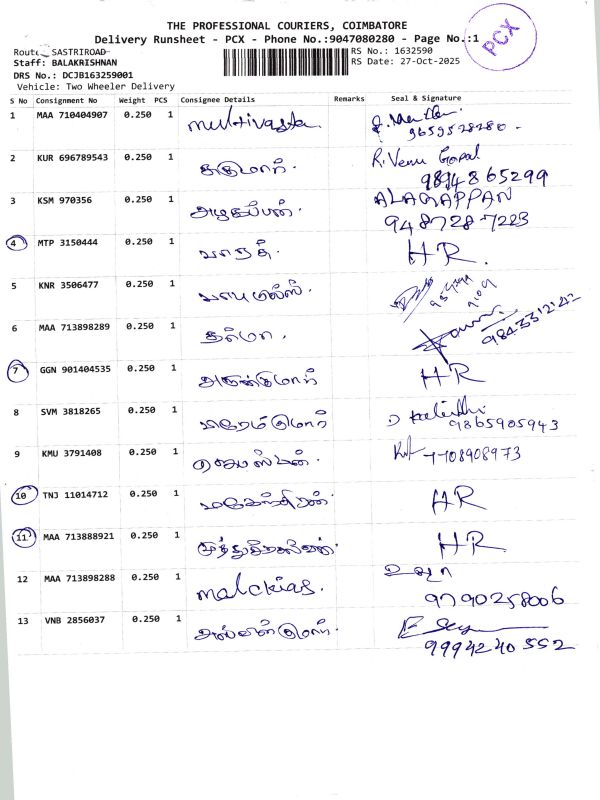 THE PROFESSIONAL COURIERS, COIMBATORE
Delivery Runsheet - PCX - Phone No.:9047080280 - Page No.:1
PCX
Route: SASTRIROAD
RS No.: 1632590
Staff: BALAKRISHNAN
RS Date: 27-Oct-2025
DRS No.: DCJB163259001
Vehicle: Two Wheeler Delivery
S No Consignment No Weight PCS Consignee Details Remarks Seal & Signature
1 MAA 710404907 0.250 1
9659528280
2 KUR 696789543 0.250 1 R. Venu Gopal
9894865299
3 KSM 970356 0.250 1 அழகப்பன். ALAGAPPAN
9487287223
4 MTP 3150444 0.250 1 பாரத். HR.
5 KNR 3506477 0.250 1
6 MAA 713898289 0.250 1
9843312122
7 GGN 901404535 0.250 1 அருண்குமார் HR
8 SVM 3818265 0.250 1 பிரேம்குமார்
9865905943
9 KMU 3791408 0.250 1
10 TNJ 11014712 0.250 1 மகேந்திரன். HR
11 MAA 713888921 0.250 1 HR
12 MAA 713898288 0.250 1
9790258006
13 VNB 2856037 0.250 1 அஸ்வின்குமார்.
9994240552